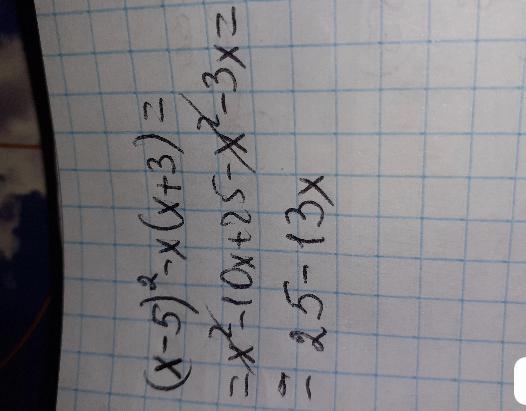 (x-5)²-x(x+3)=
=x²-10x+25-x²-3x=
= 25-13x